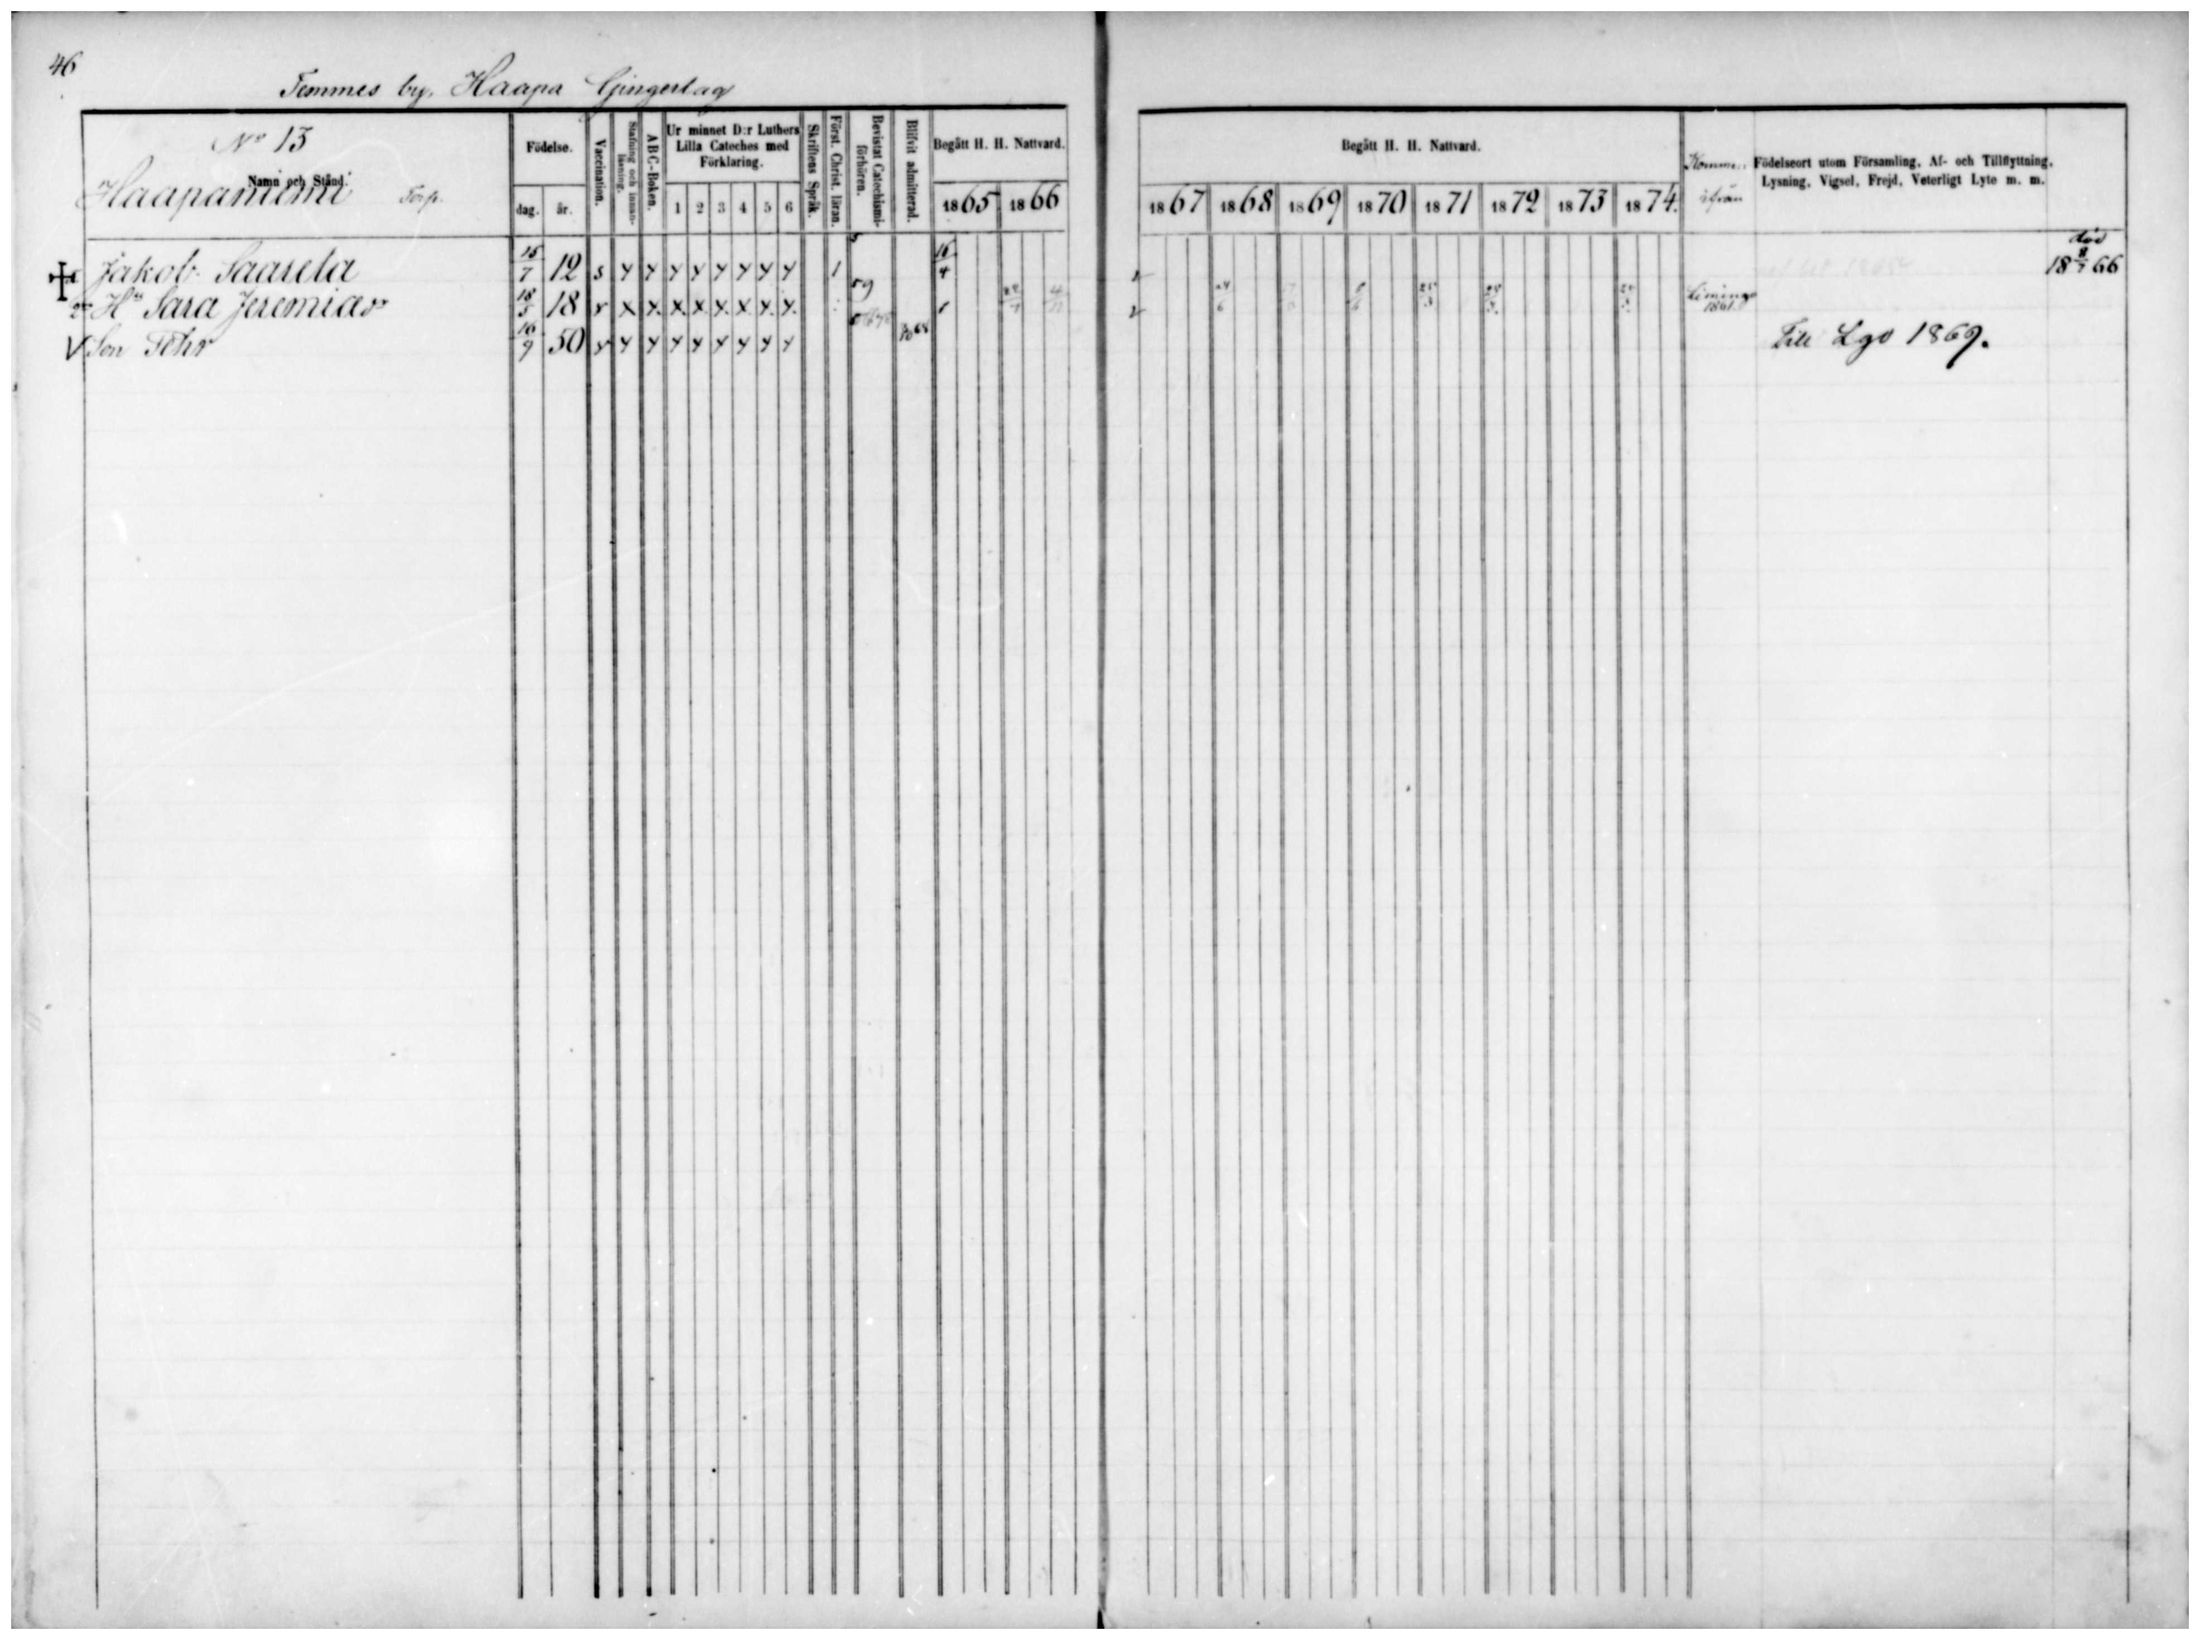 46
Temmes by, Haapa Gingerlag
No 13
Namn och Stånd.
Haapaniemi Torp.
Födelse. dag. år.
Vaccination.
Stafning och innanläsning.
A B C-Boken.
Ur minnet D:r Luthers Lilla Cateches med Förklaring. 1 2 3 4 5 6
Skriftens Språk.
Först. Christ. läran.
Bevistat Catechismiförhören.
Blifvit admitterad.
Begått H. H. Nattvard. 1865 1866
Begått H. H. Nattvard.
1867 1868 1869 1870 1871 1872 1873 1874.
ifrån
Födelseort utom Församling, Af- och Tillflyttning, Lysning, Vigsel, Frejd, Veterligt Lyte m. m.
Jakob Saarela 15/7 12 s x x x x x x x x 1 16/4 död 18 8/7 66
Hu Sara Jeremiasdr 18/5 18 x x x x x x x x x 59 24/6 Limingo 1861
V Son Pehr 16/9 50 x x x x x x x x x Till Lgo 1869.